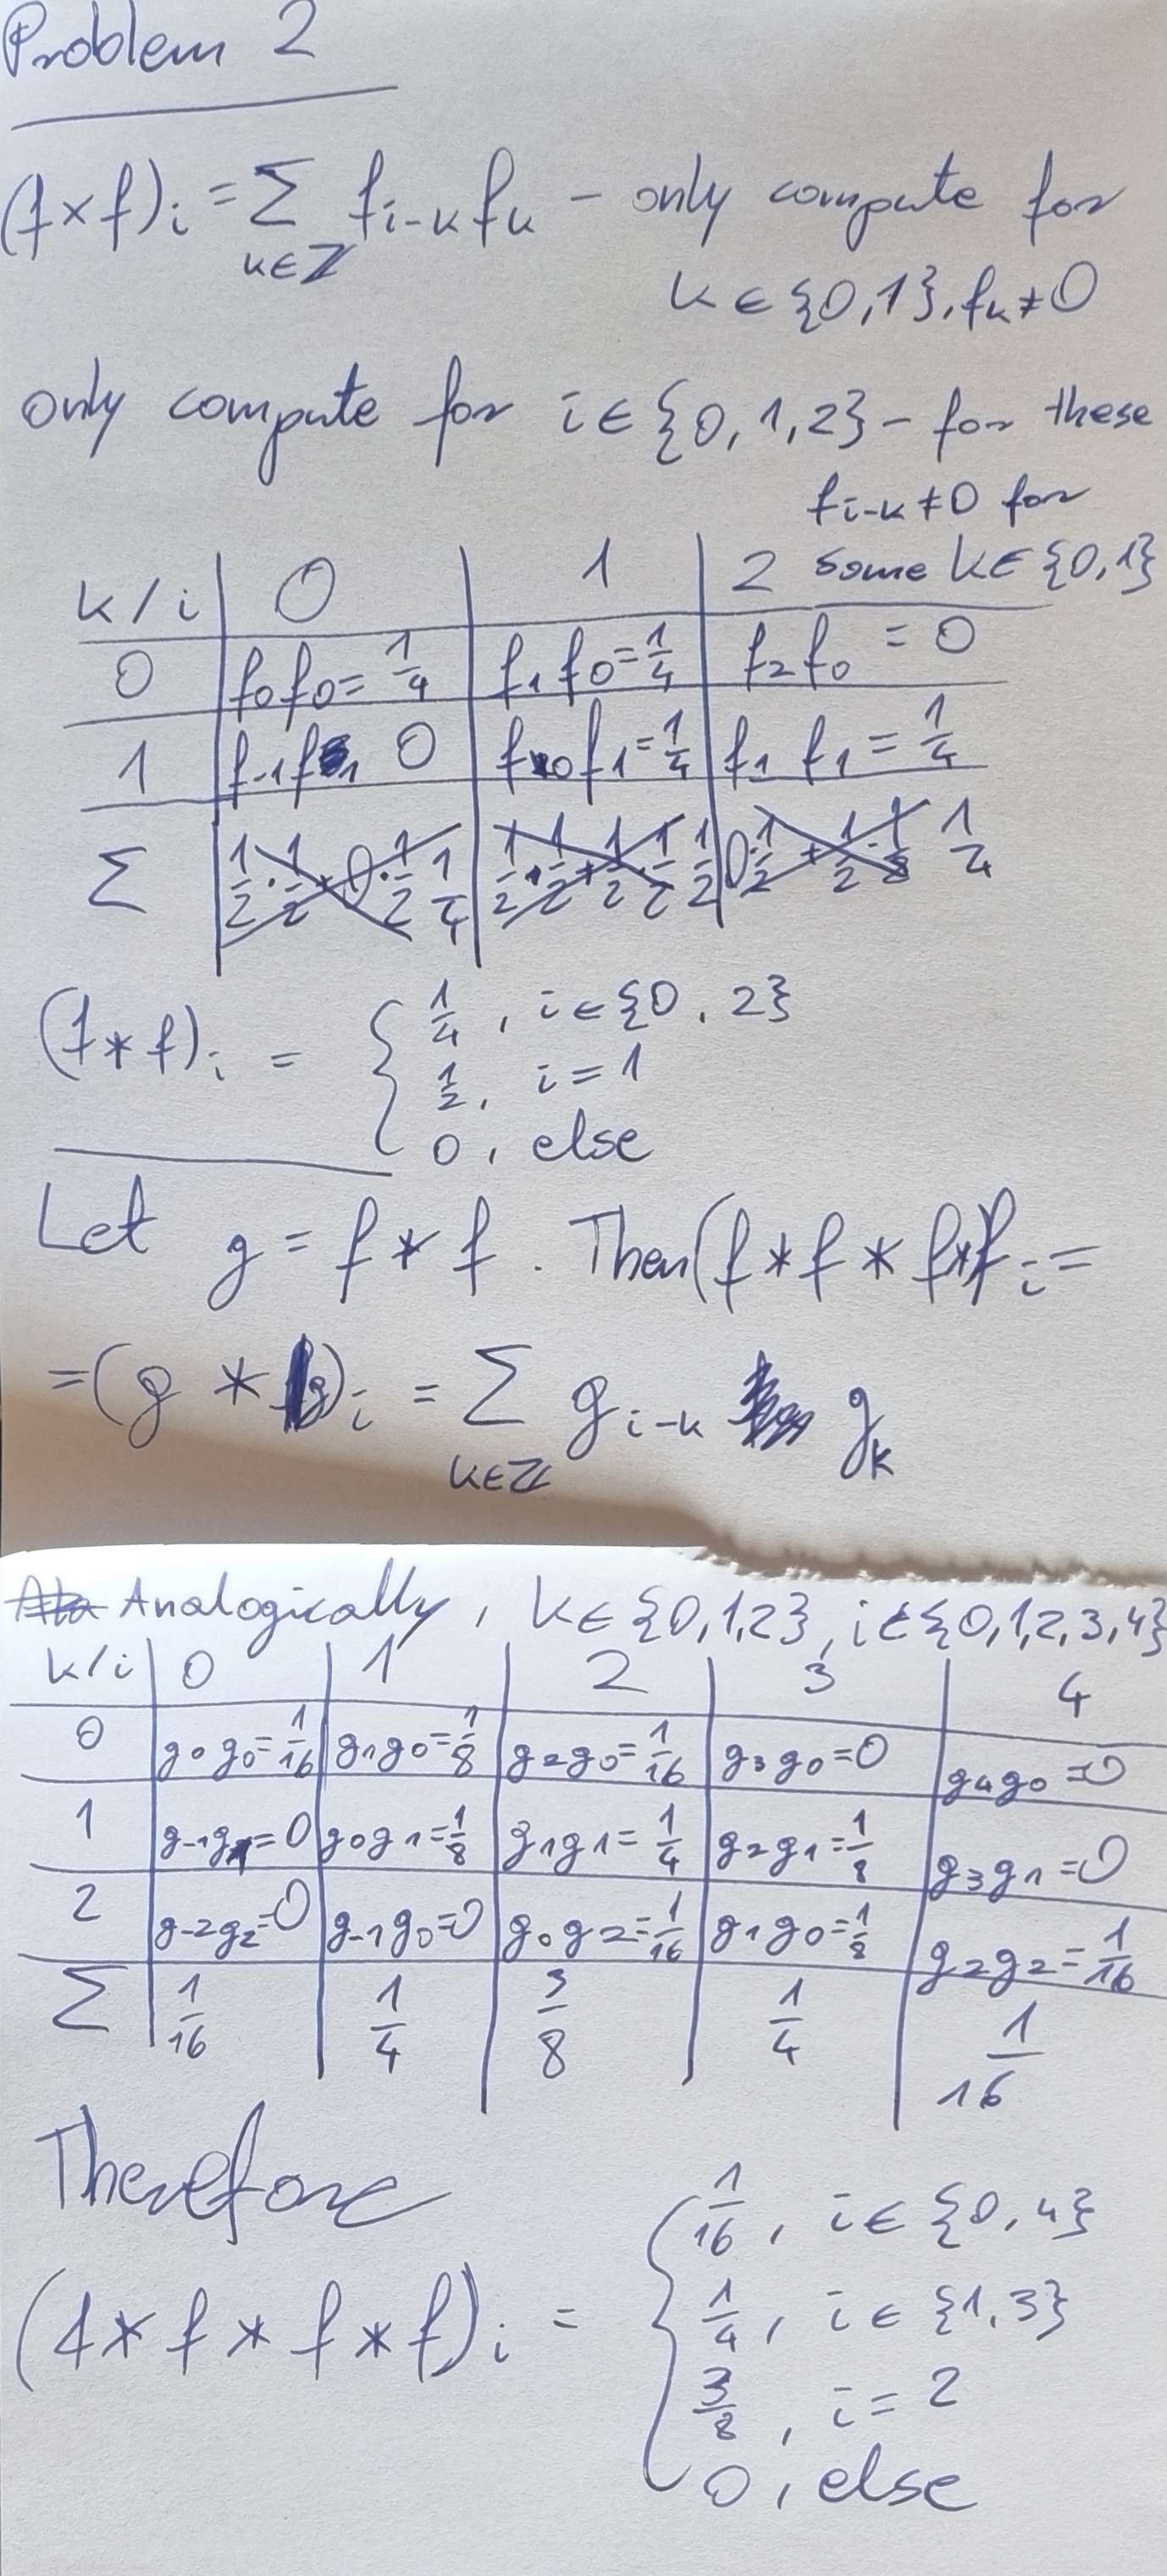 Problem 2
(f×f)i = Σ fi-k fk - only compute for
k∈ℤ
k ∈ {0,1}, fk≠0
only compute for i∈{0,1,2} - for these
fi-k≠0 for
some k∈{0,1}
k/i | 0 | 1 | 2
0 | f0f0=1/4 | f1f0=1/4 | f2f0 = 0
1 | f-1f1 0 | f0f1=1/4 | f1 f1 = 1/4
Σ | 1/4 | 1/2 | 1/4
(f*f)i = { 1/4, i∈{0,2}
1/2, i=1
0, else
Let g = f*f. Then (f*f*f*f)i =
=(g * g)i = Σ gi-k gk
k∈ℤ
Analogically, k∈{0,1,2}, i∈{0,1,2,3,4}
k/i | 0 | 1 | 2 | 3 | 4
0 | g0g0=1/16 | g1g0=1/8 | g2g0=1/16 | g3g0=0 | g4g0=0
1 | g-1g1=0 | g0g1=1/8 | g1g1=1/4 | g2g1=1/8 | g3g1=0
2 | g-2g2=0 | g-1g0=0 | g0g2=1/16 | g1g0=1/8 | g2g2=1/16
Σ | 1/16 | 1/4 | 3/8 | 1/4 | 1/16
Therefore
(f*f*f*f)i = { 1/16, i∈{0,4}
1/4, i∈{1,3}
3/8, i=2
0, else